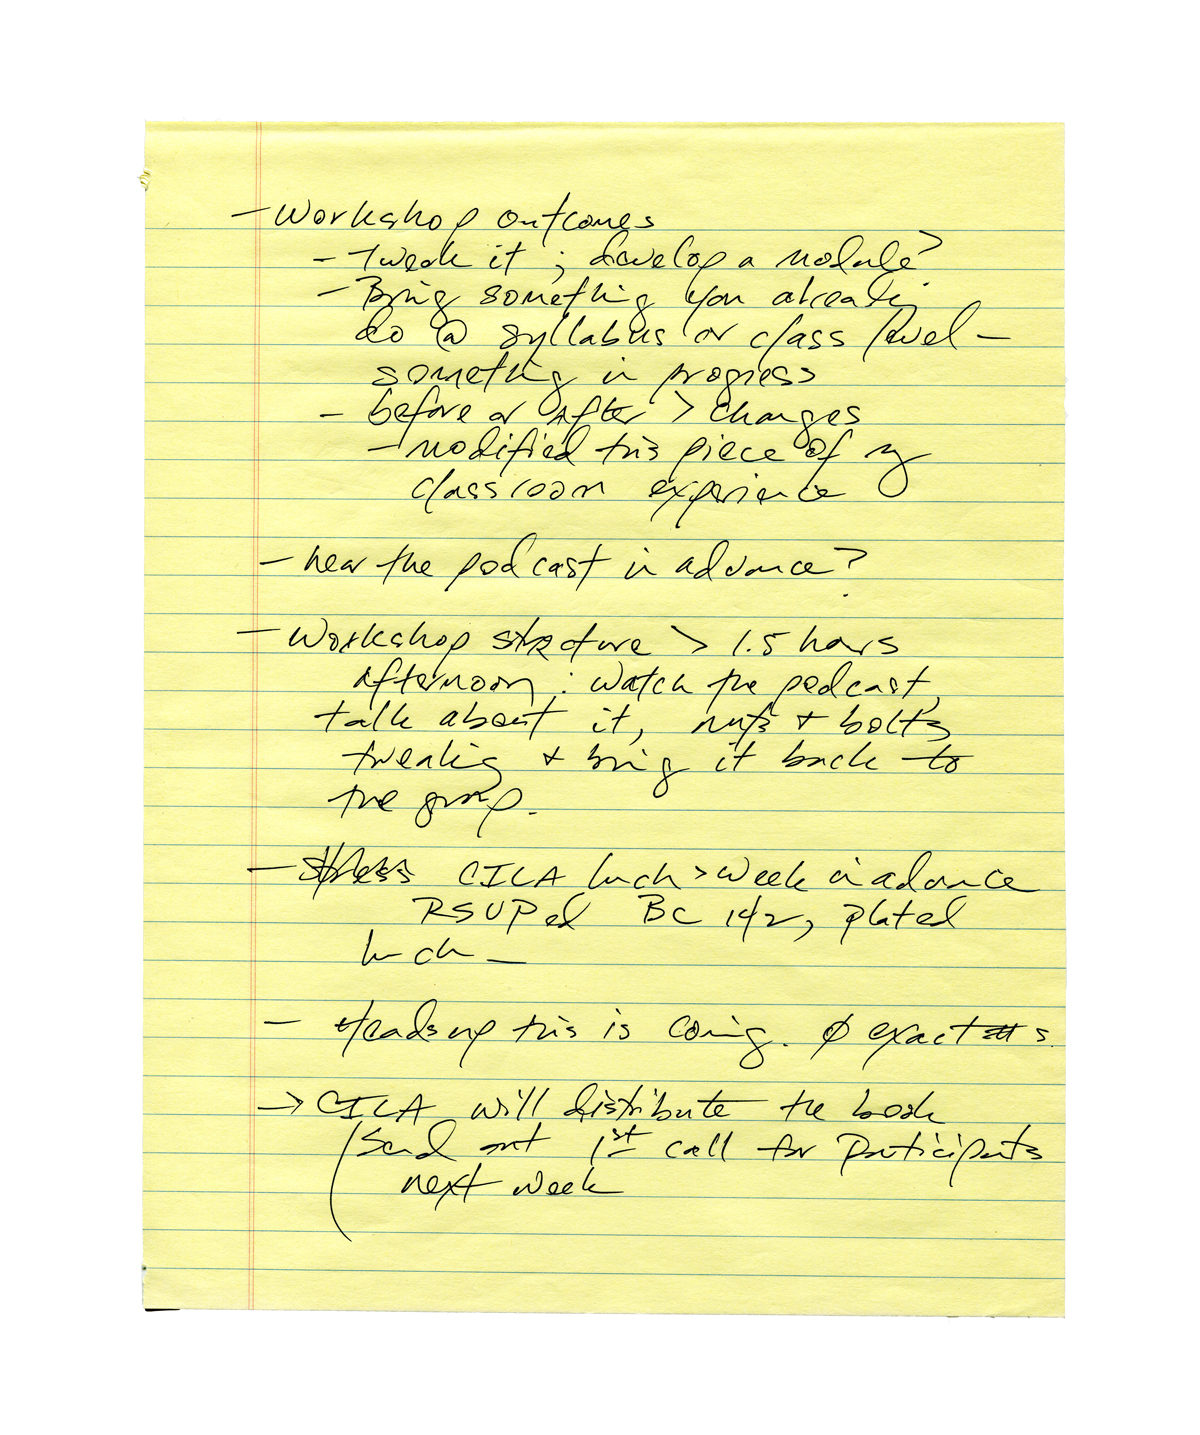 - Workshop outcomes
- tweak it ; develop a module?
- Bring something you already
do @ syllabus or class level -
something in progress
- before or after > changes
- modified this piece of my
classroom experience
- hear the podcast in advance?
- Workshop structure > 1.5 hours
afternoon : watch the podcast,
talk about it, nuts + bolts
tweaking + bring it back to
the group.
- CILA lunch > week in advance
RSVPed BC 142, plated
lunch -
- Heads up this is coming. Ø exact #s.
→ CILA will distribute the book
(Send out 1st call for Participants
next week